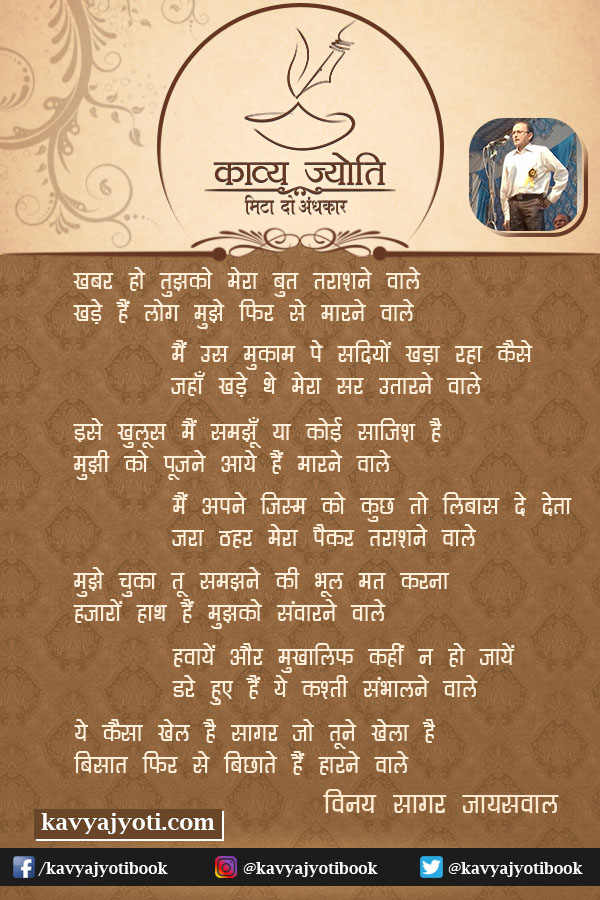 काव्य ज्योति
मिटा दो अंधकार
खबर हो तुझको मेरा बुत तराशने वाले
खड़े हैं लोग मुझे फिर से मारने वाले
मैं उस मुकाम पे सदियों खड़ा रहा कैसे
जहाँ खड़े थे मेरा सर उतारने वाले
इसे खुलूस मैं समझूँ या कोई साजिश है
मुझी को पूजने आये हैं मारने वाले
मैं अपने जिस्म को कुछ तो लिबास दे देता
जरा ठहर मेरा पैकर तराशने वाले
मुझे चुका तू समझने की भूल मत करना
हजारों हाथ हैं मुझको संवारने वाले
हवायें और मुखालिफ कहीं न हो जायें
डरे हुए हैं ये कश्ती संभालने वाले
ये कैसा खेल है सागर जो तूने खेला है
बिसात फिर से बिछाते हैं हारने वाले
विनय सागर जायसवाल
kavyajyoti.com
/kavyajyotibook @kavyajyotibook @kavyajyotibook